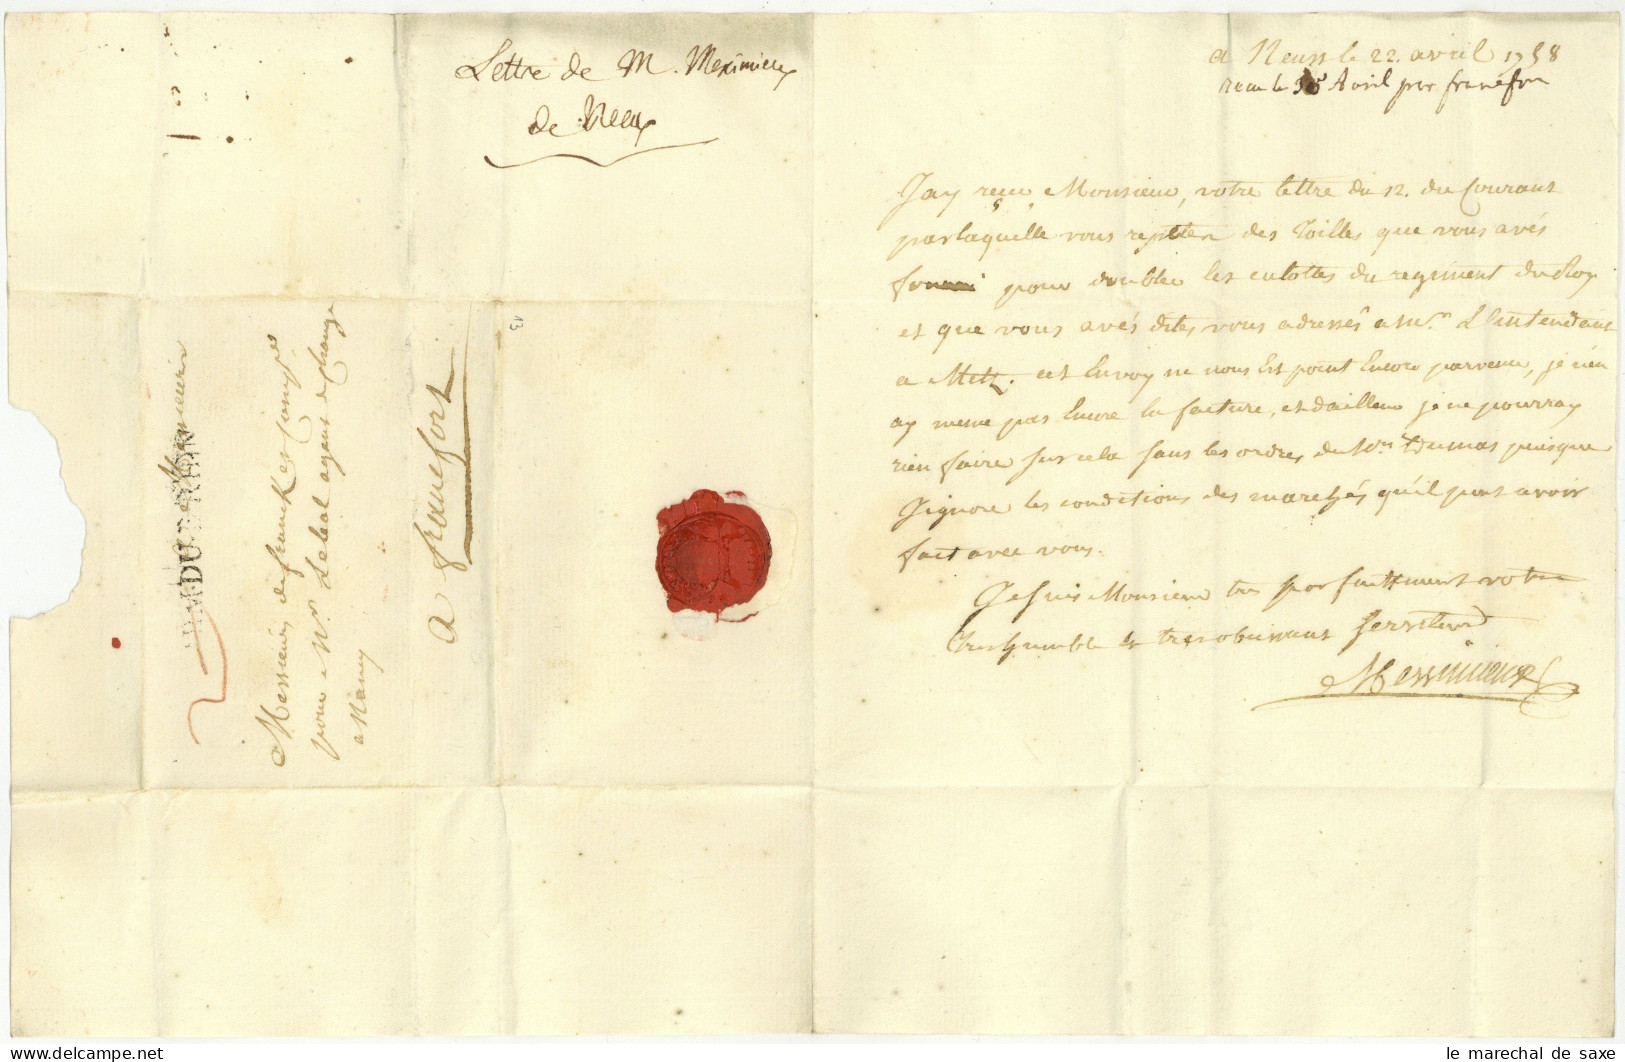 Lettre de M. Meximieux
de Neux
Messieurs de franck et Comp.es
pour Mr. Lebel agent de change
a Nancy
a francfort
13
a Neuss le 22. avril 1758
recu le 30 Avril par francfort
J'ay reçu Monsieur, votre lettre du 12. du Courant
par laquelle vous repetez des Toilles que vous avés
fourni pour doubler les culottes du regiment du Roy
et que vous avés dites vous adressés a Mr. L'Intendant
a Metz. cet Envoy ne nous Est point Encore parvenu, je n'en
ay meme pas Encore la facture, et d'ailleurs je ne pourray
rien faire sur cela sans les ordres de Mr. Dumas puisque
J'ignore les conditions des marchés qu'il peut avoir
fait avec vous.
Je suis Monsieur tres parfaittement votre
tres humble et tres obeissant serviteur
Messimieux
le marechal de saxe